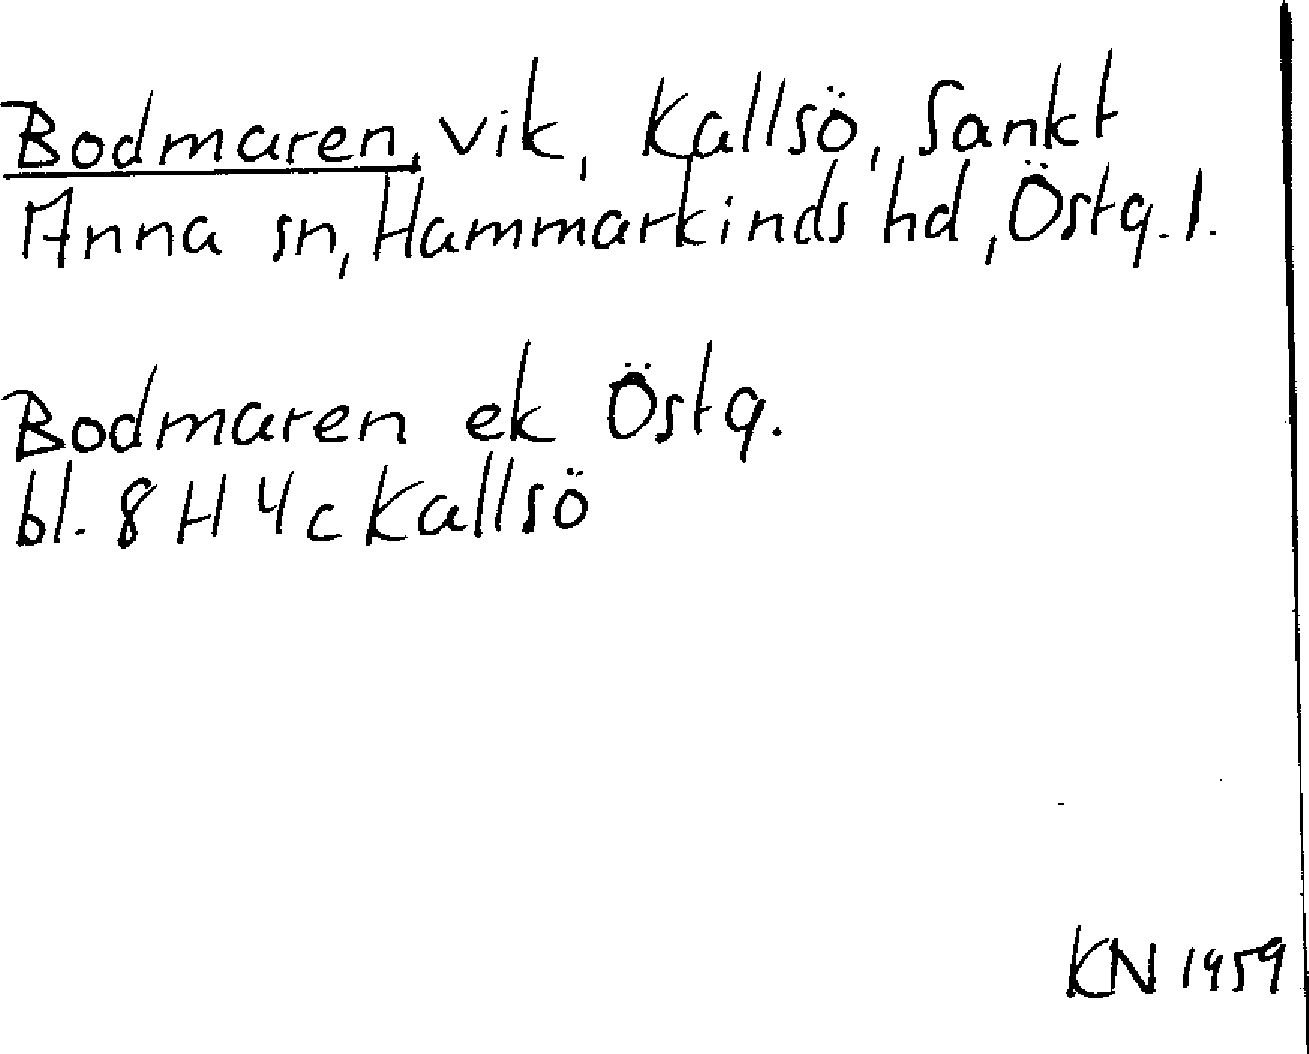 Bodmaren, vik, Kallsö, Sankt
Anna sn, Hammarkinds hd, Östg. l.
Bodmaren ek Östg.
bl. 8 H 4c Kallsö
KN 1959